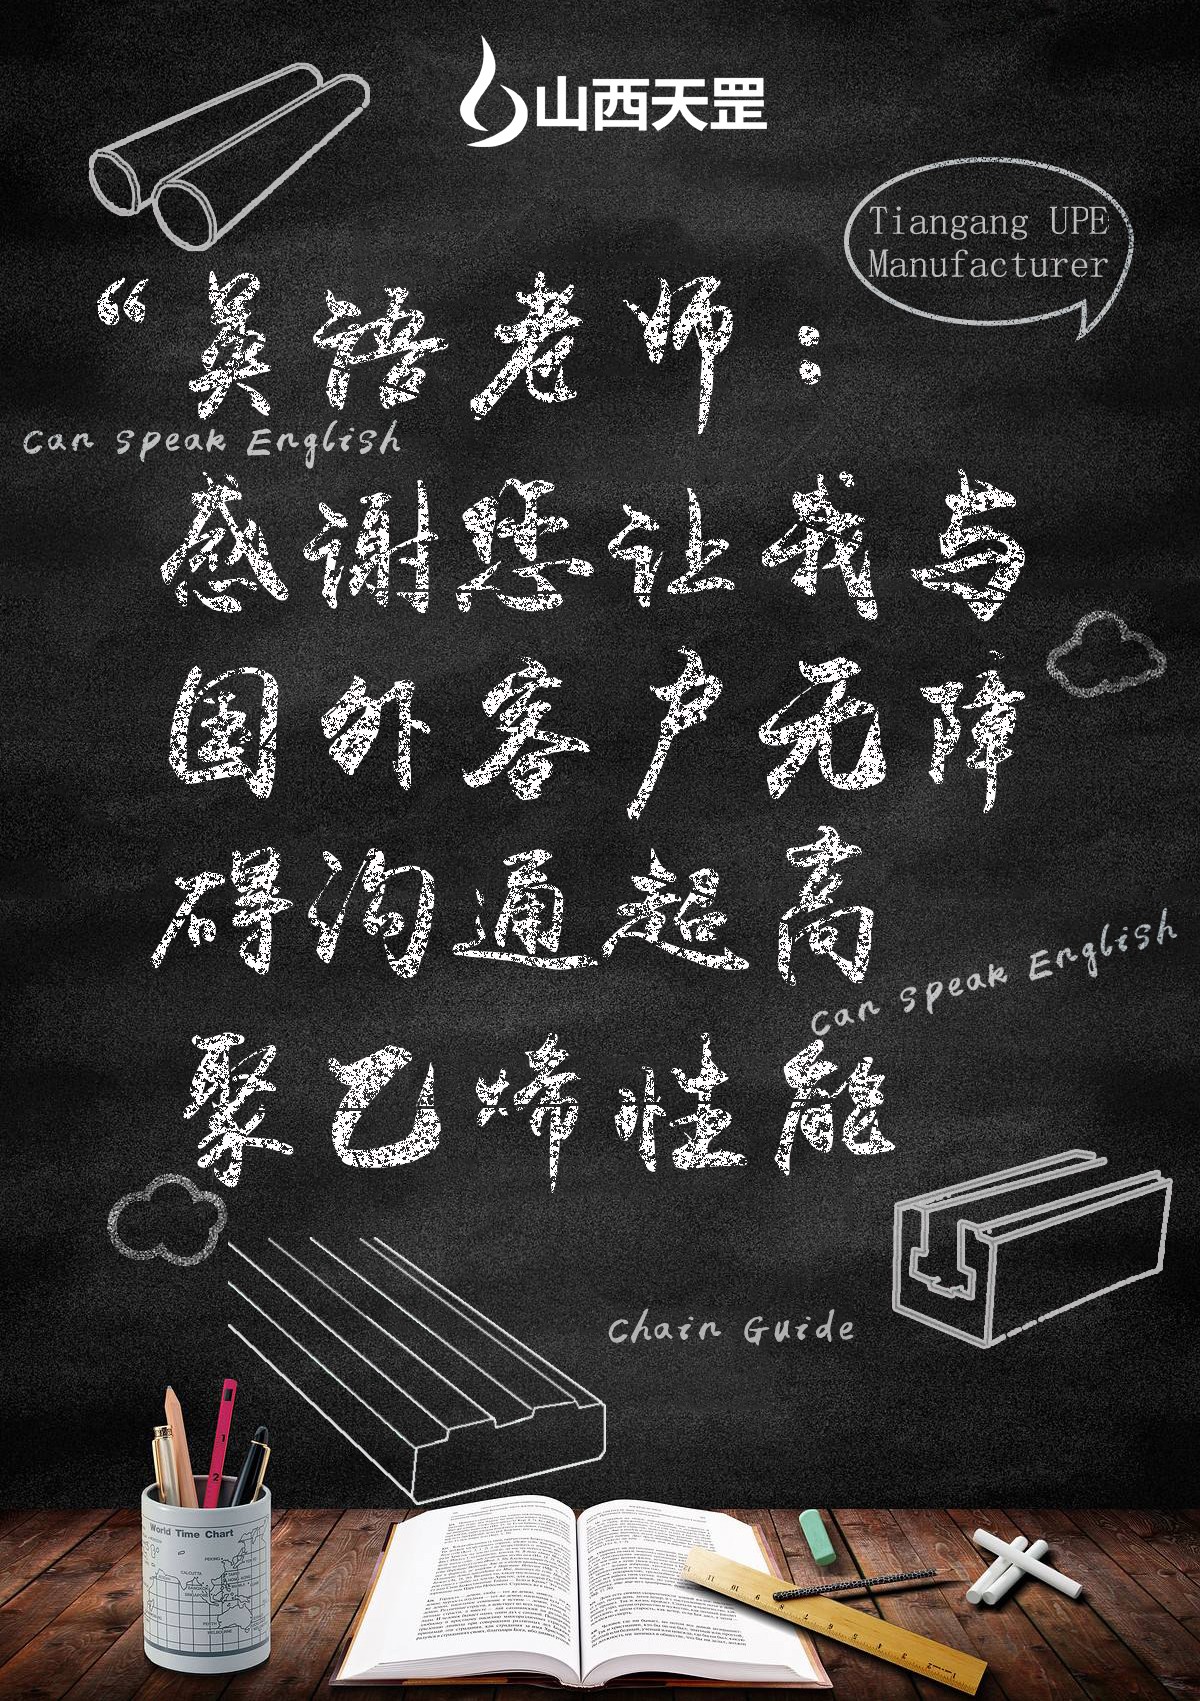 山西天罡
Tiangang UPE
Manufacturer
“英語老师：
Can speak English
感谢您让我与
国外客户无障
碍沟通超高
Can speak English
聚乙烯性能
Chain Guide
World Time Chart